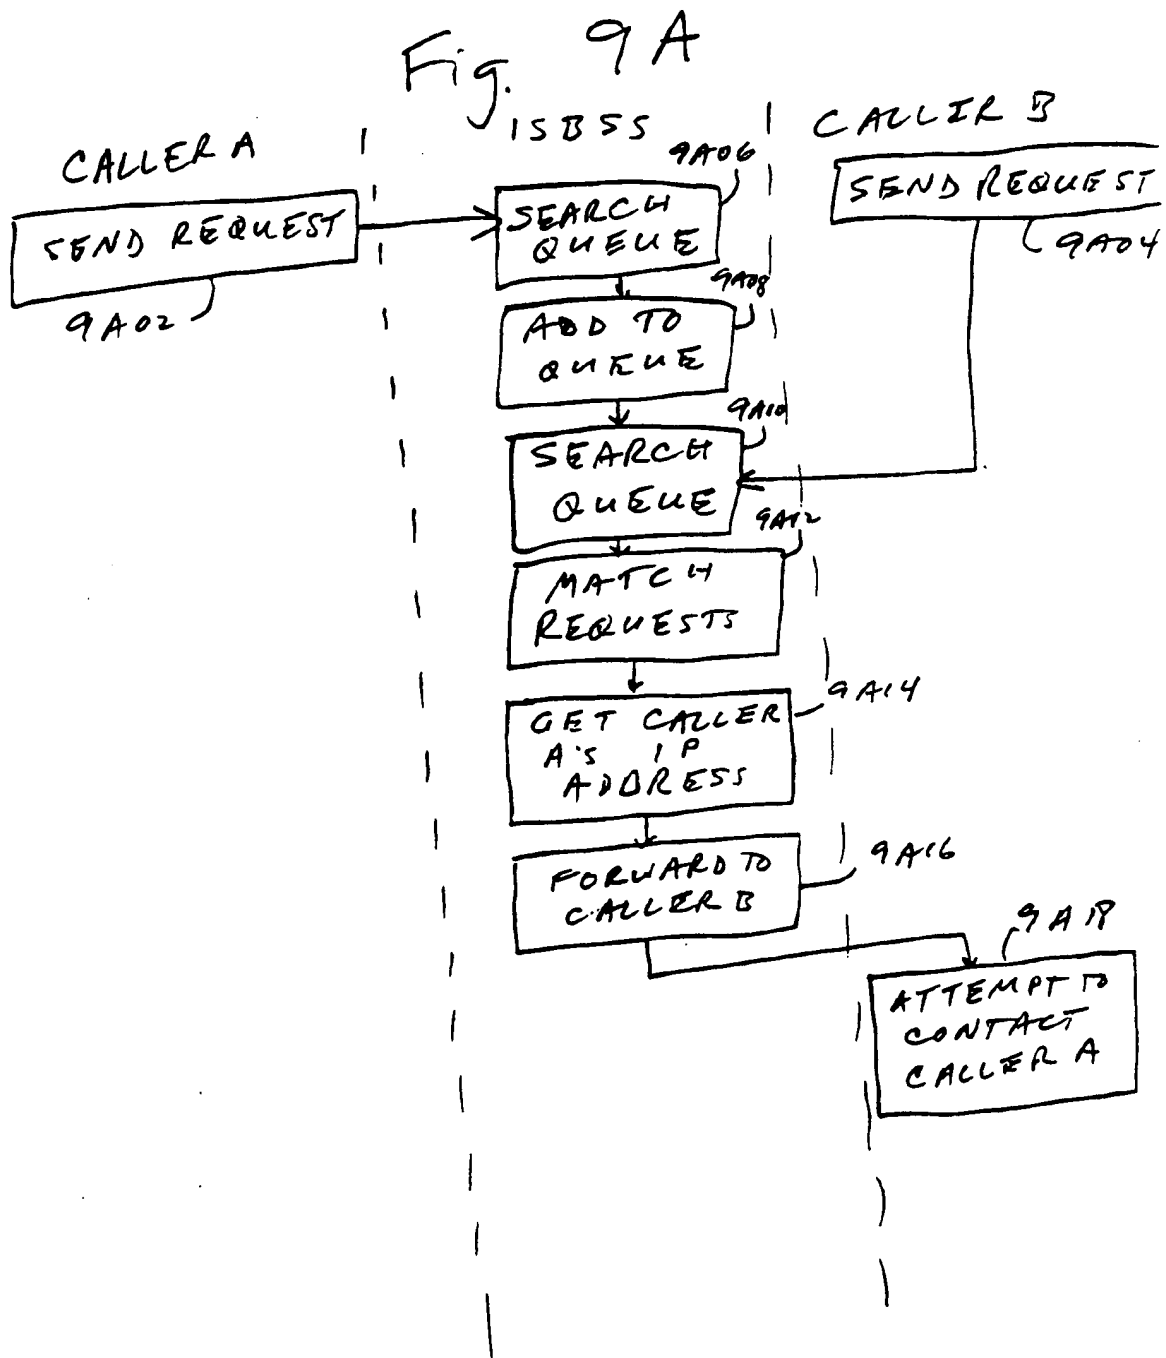 Fig. 9A
CALLER A
ISBSS
CALLER B
SEND REQUEST
9A02
SEND REQUEST
9A04
9A06
SEARCH
QUEUE
9A08
ADD TO
QUEUE
9A10
SEARCH
QUEUE
9A12
MATCH
REQUESTS
9A14
GET CALLER
A's IP
ADDRESS
9A16
FORWARD TO
CALLER B
9A18
ATTEMPT TO
CONTACT
CALLER A